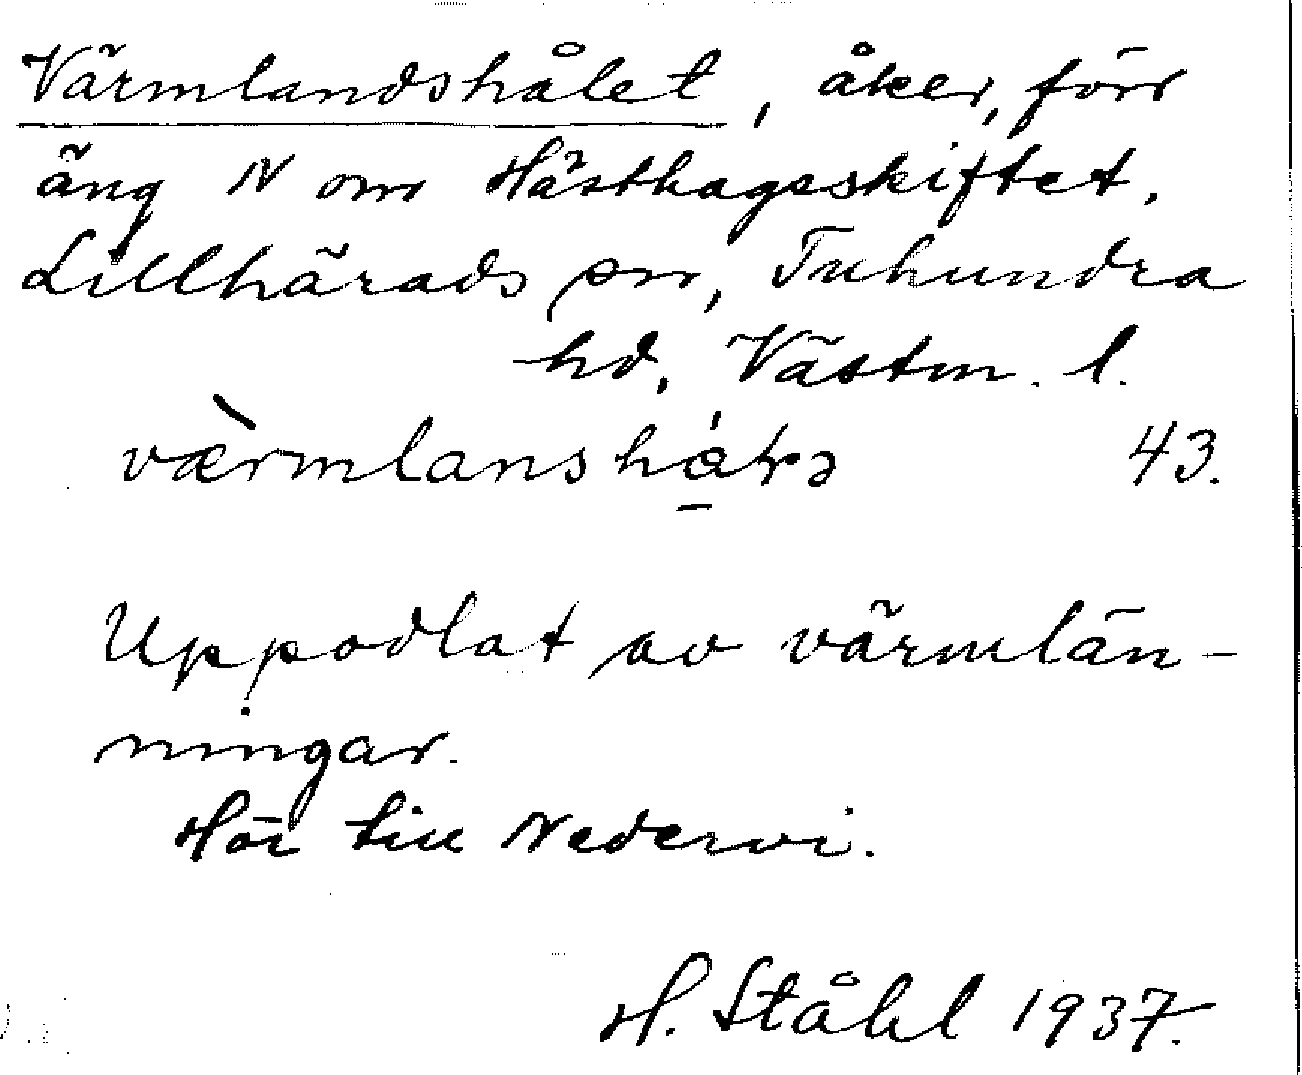 Värmlandshålet, åker, förr
äng N om Hästhagaskiftet.
Lillhärads sn, Tuhundra
hd, Västm. l.
43.
Uppodlat av värmlän-
ningar.
Hör till Nedervi.
H. Ståhl 1937.